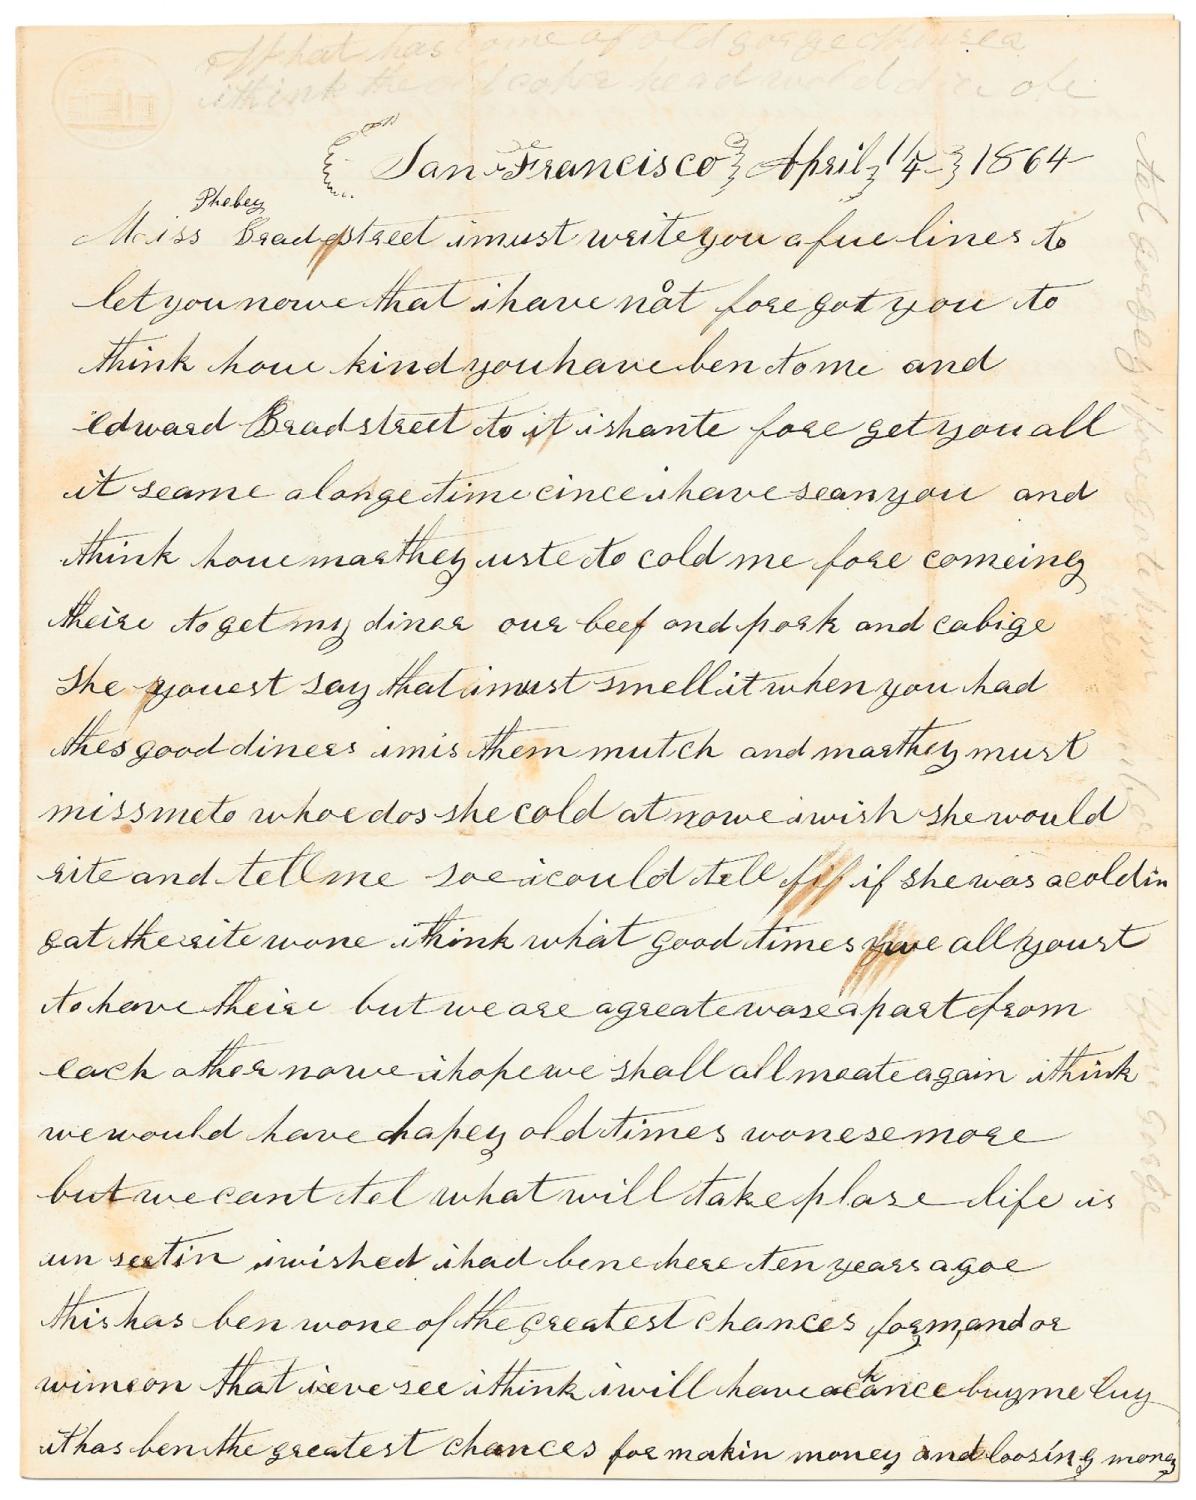 What has come of old gorge
i think the old coper head would die of
San Francisco April 14 1864
Phebey
Miss Bradstreet i must write you a fue lines to
let you nowe that i have not fore got you to
think houe kind you have ben to me and
Edward Bradstreet to it i shante fore get you all
it seame a longe time cince i have sean you and
think houe marthey uste to cold me fore comeing
theire to get my diner our beef and pork and cabige
She youest say that i must smell it when you had
thes good diners i mis them mutch and marthey must
miss me to whoe dos she cold at nowe i wish she would
rite and tell me soe i could tell if if she was a coldin
gat the rite wone i think what good times we all youst
to have theire but we are a greate wase apart from
each other nowe i hope we shall all meate again i think
we would have hapey old times wonese more
but we cant tel what will take plase life is
un sertin i wished i had bene here ten years agoe
this has ben wone of the greatest chances for m,and or
wimeon that i eve see i think i will have a chance buy me buy
it has ben the greatest chances for makin money and loosing money
tel
gorge